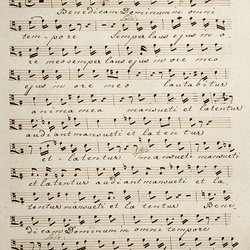 Benedicam Dominum omni
tempore Semper laus ejus in o-
re meo semper laus ejus in o-
re meo semper laus
ejus in ore meo laudabitur
anima mea mansueti et latentur
audiant mansueti et latentur
et latentur mansueti mansueti
et latentur audiant mansueti et la
tentur mansueti et la tentur Bene
dicam Dominum omni tempore